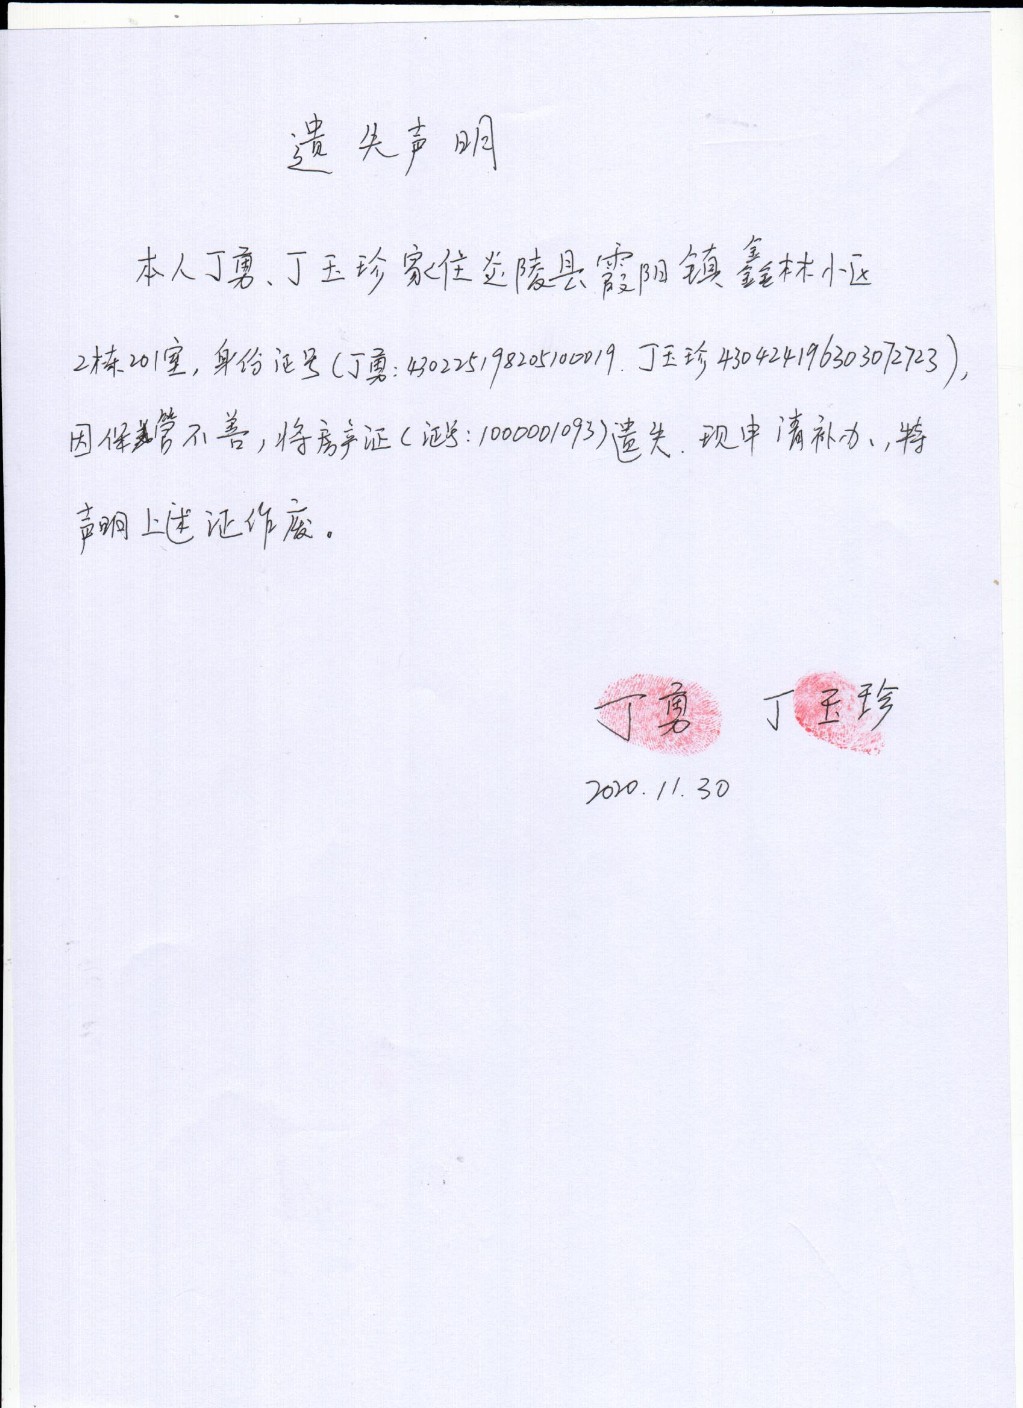 遗失声明
本人丁勇、丁玉珍家住炎陵县霞阳镇鑫林小区
2栋201室，身份证号（丁勇：430225198205100019.丁玉珍430424196303072723），
因保管不善，将房产证（证号：1000001093）遗失.现申请补办，特
声明上述证作废。
丁勇 丁玉珍
2020.11.30